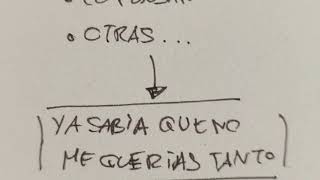 • OTRAS...
YA SABÍA QUE NO
ME QUERÍAS TANTO